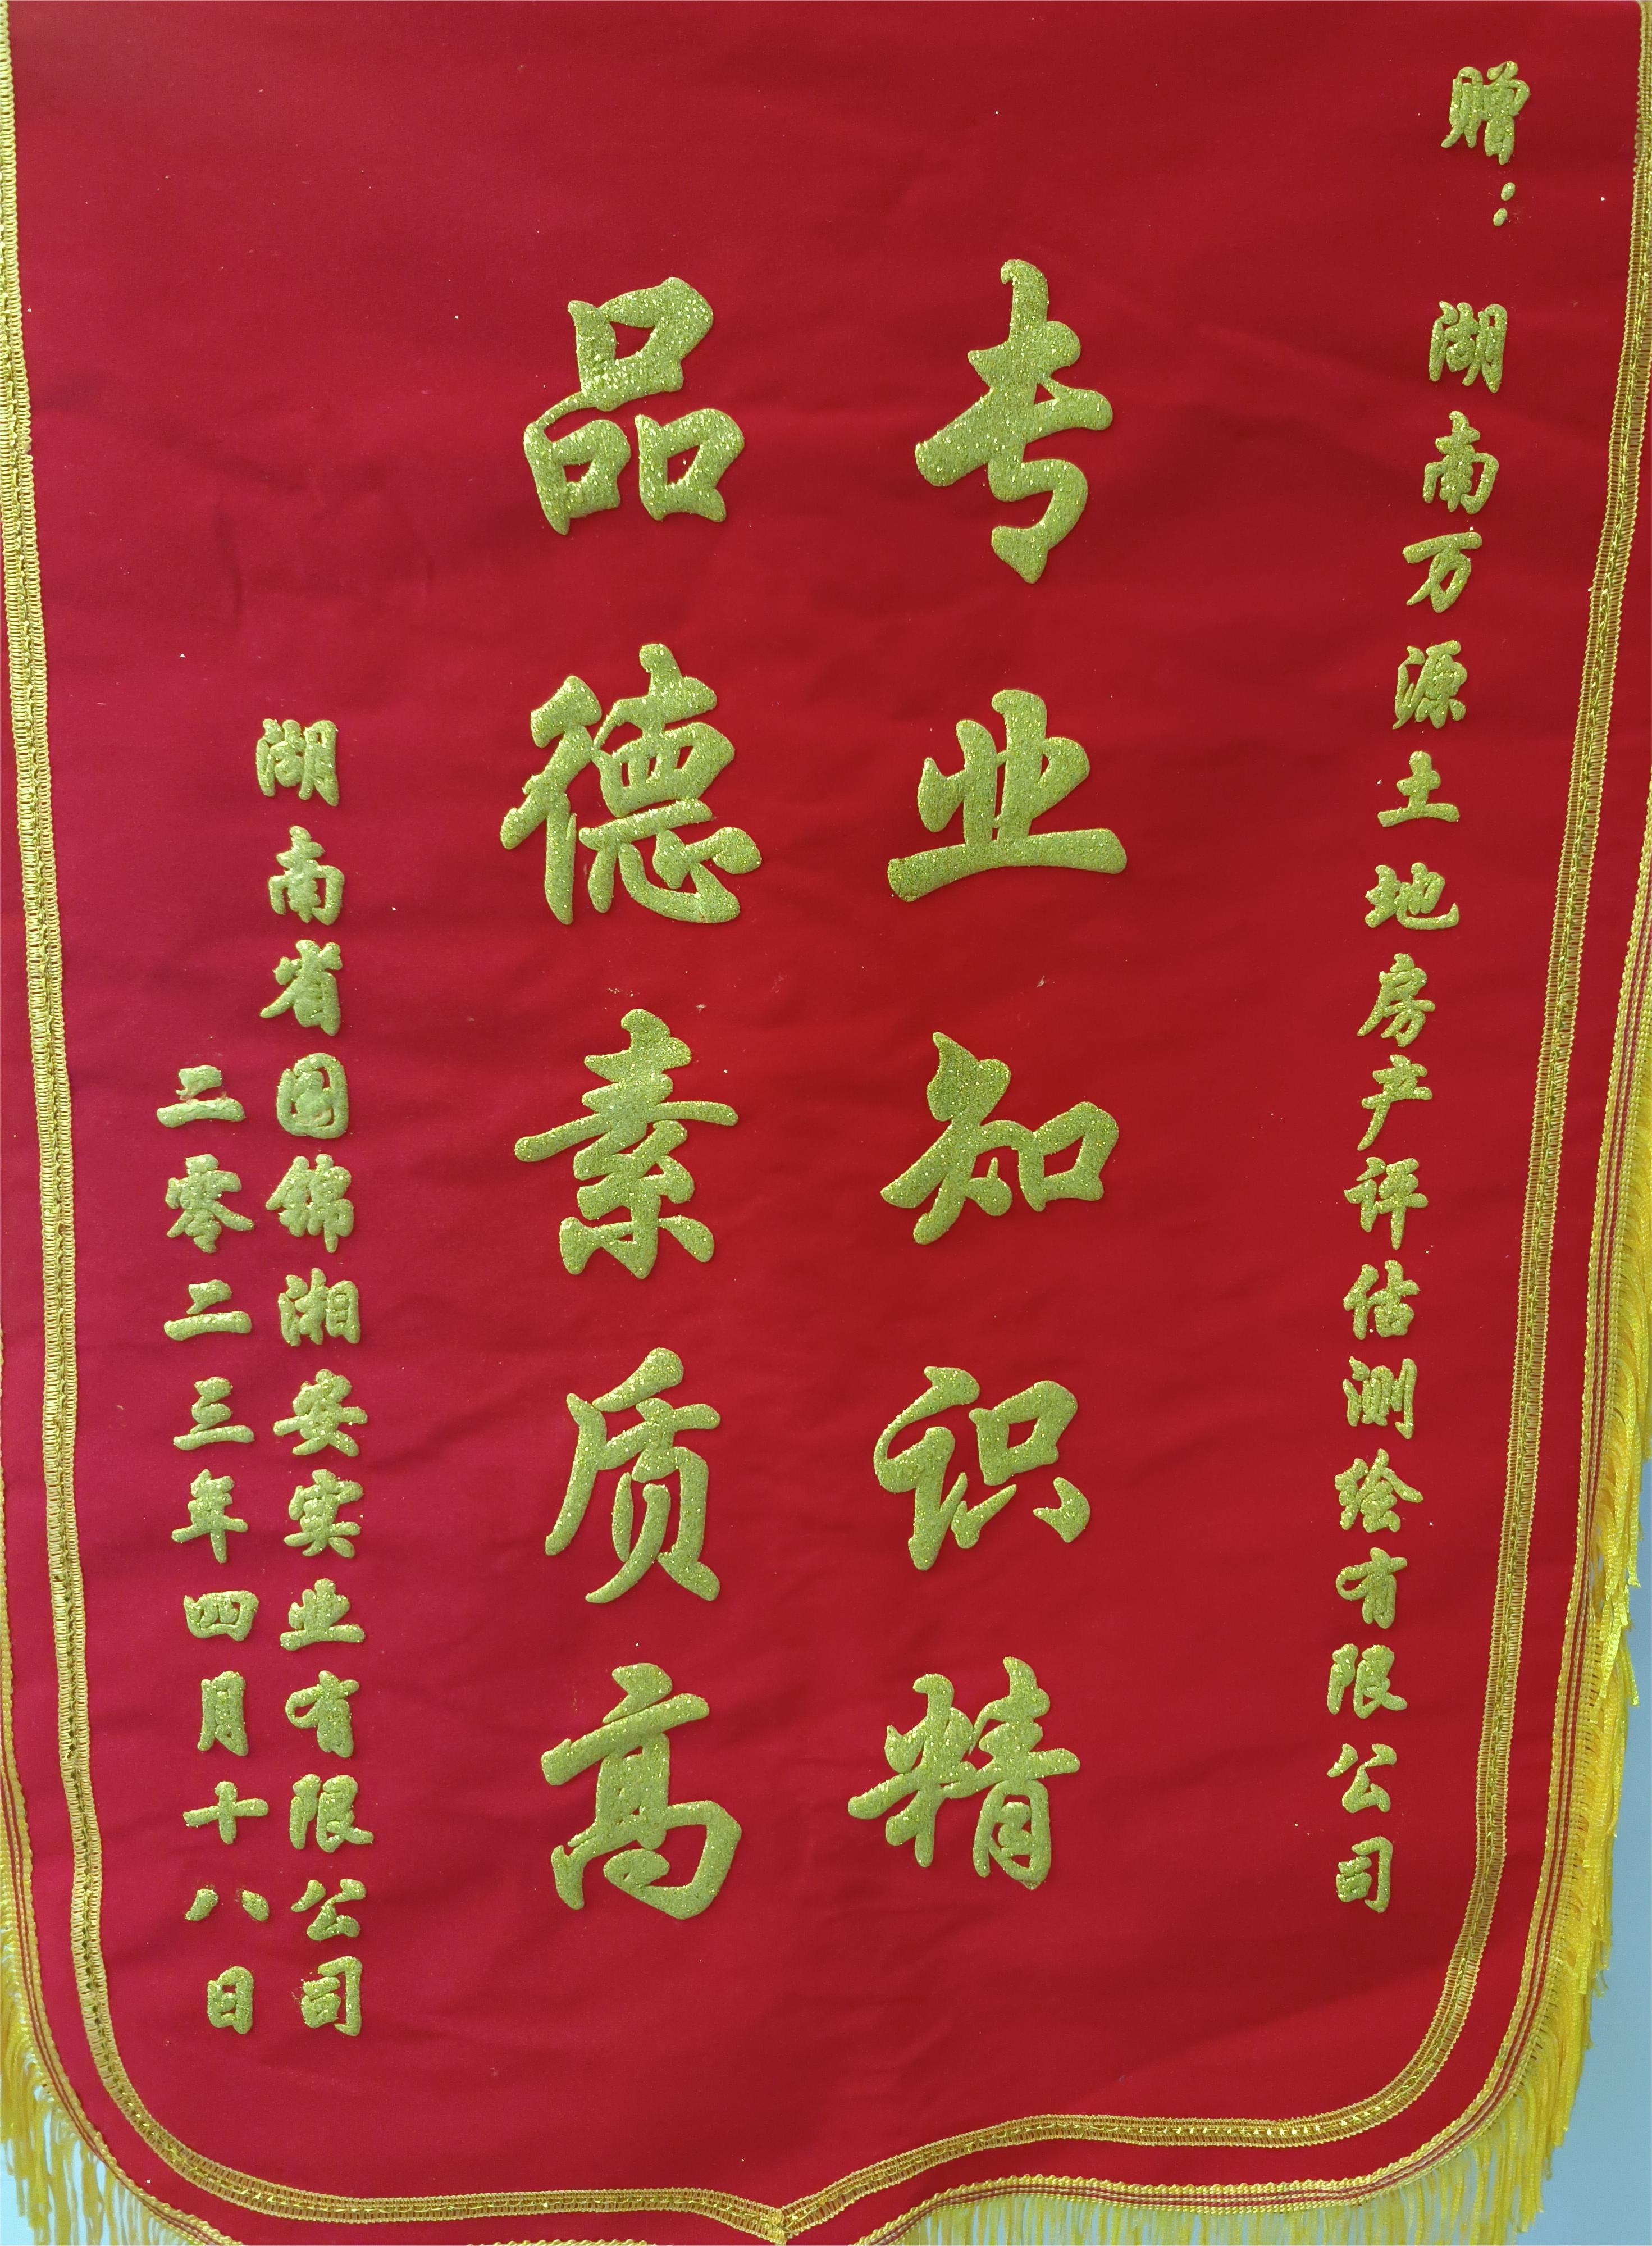 赠：湖南万源土地房产评估测绘有限公司
专业知识精
品德素质高
湖南省国锦湘安实业有限公司
二零二三年四月十八日